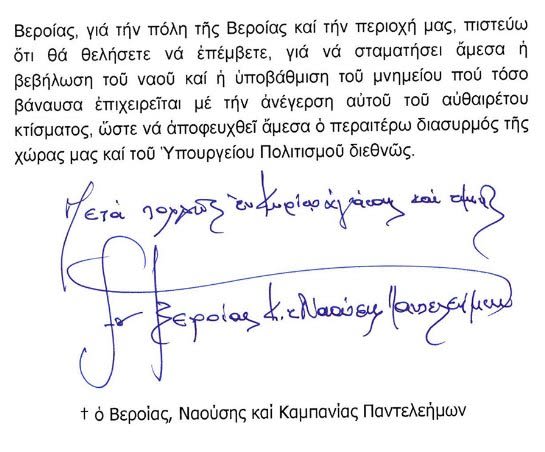 Βεροίας, γιά τήν πόλη τῆς Βεροίας καί τήν περιοχή μας, πιστεύω
ὅτι θά θελήσετε νά ἐπέμβετε, γιά νά σταματήσει ἄμεσα ἡ
βεβήλωση τοῦ ναοῦ καί ἡ ὑποβάθμιση τοῦ μνημείου πού τόσο
βάναυσα ἐπιχειρεῖται μέ τήν ἀνέγερση αὐτοῦ τοῦ αὐθαιρέτου
κτίσματος, ὥστε νά ἀποφευχθεῖ ἄμεσα ὁ περαιτέρω διασυρμός τῆς
χώρας μας καί τοῦ Ὑπουργείου Πολιτισμοῦ διεθνῶς.
Μετά πολλῆς ἐν Κυρίῳ ἀγάπης καί τιμῆς
Βεροίας Ναούσης Παντελεήμων
† ὁ Βεροίας, Ναούσης καί Καμπανίας Παντελεήμων